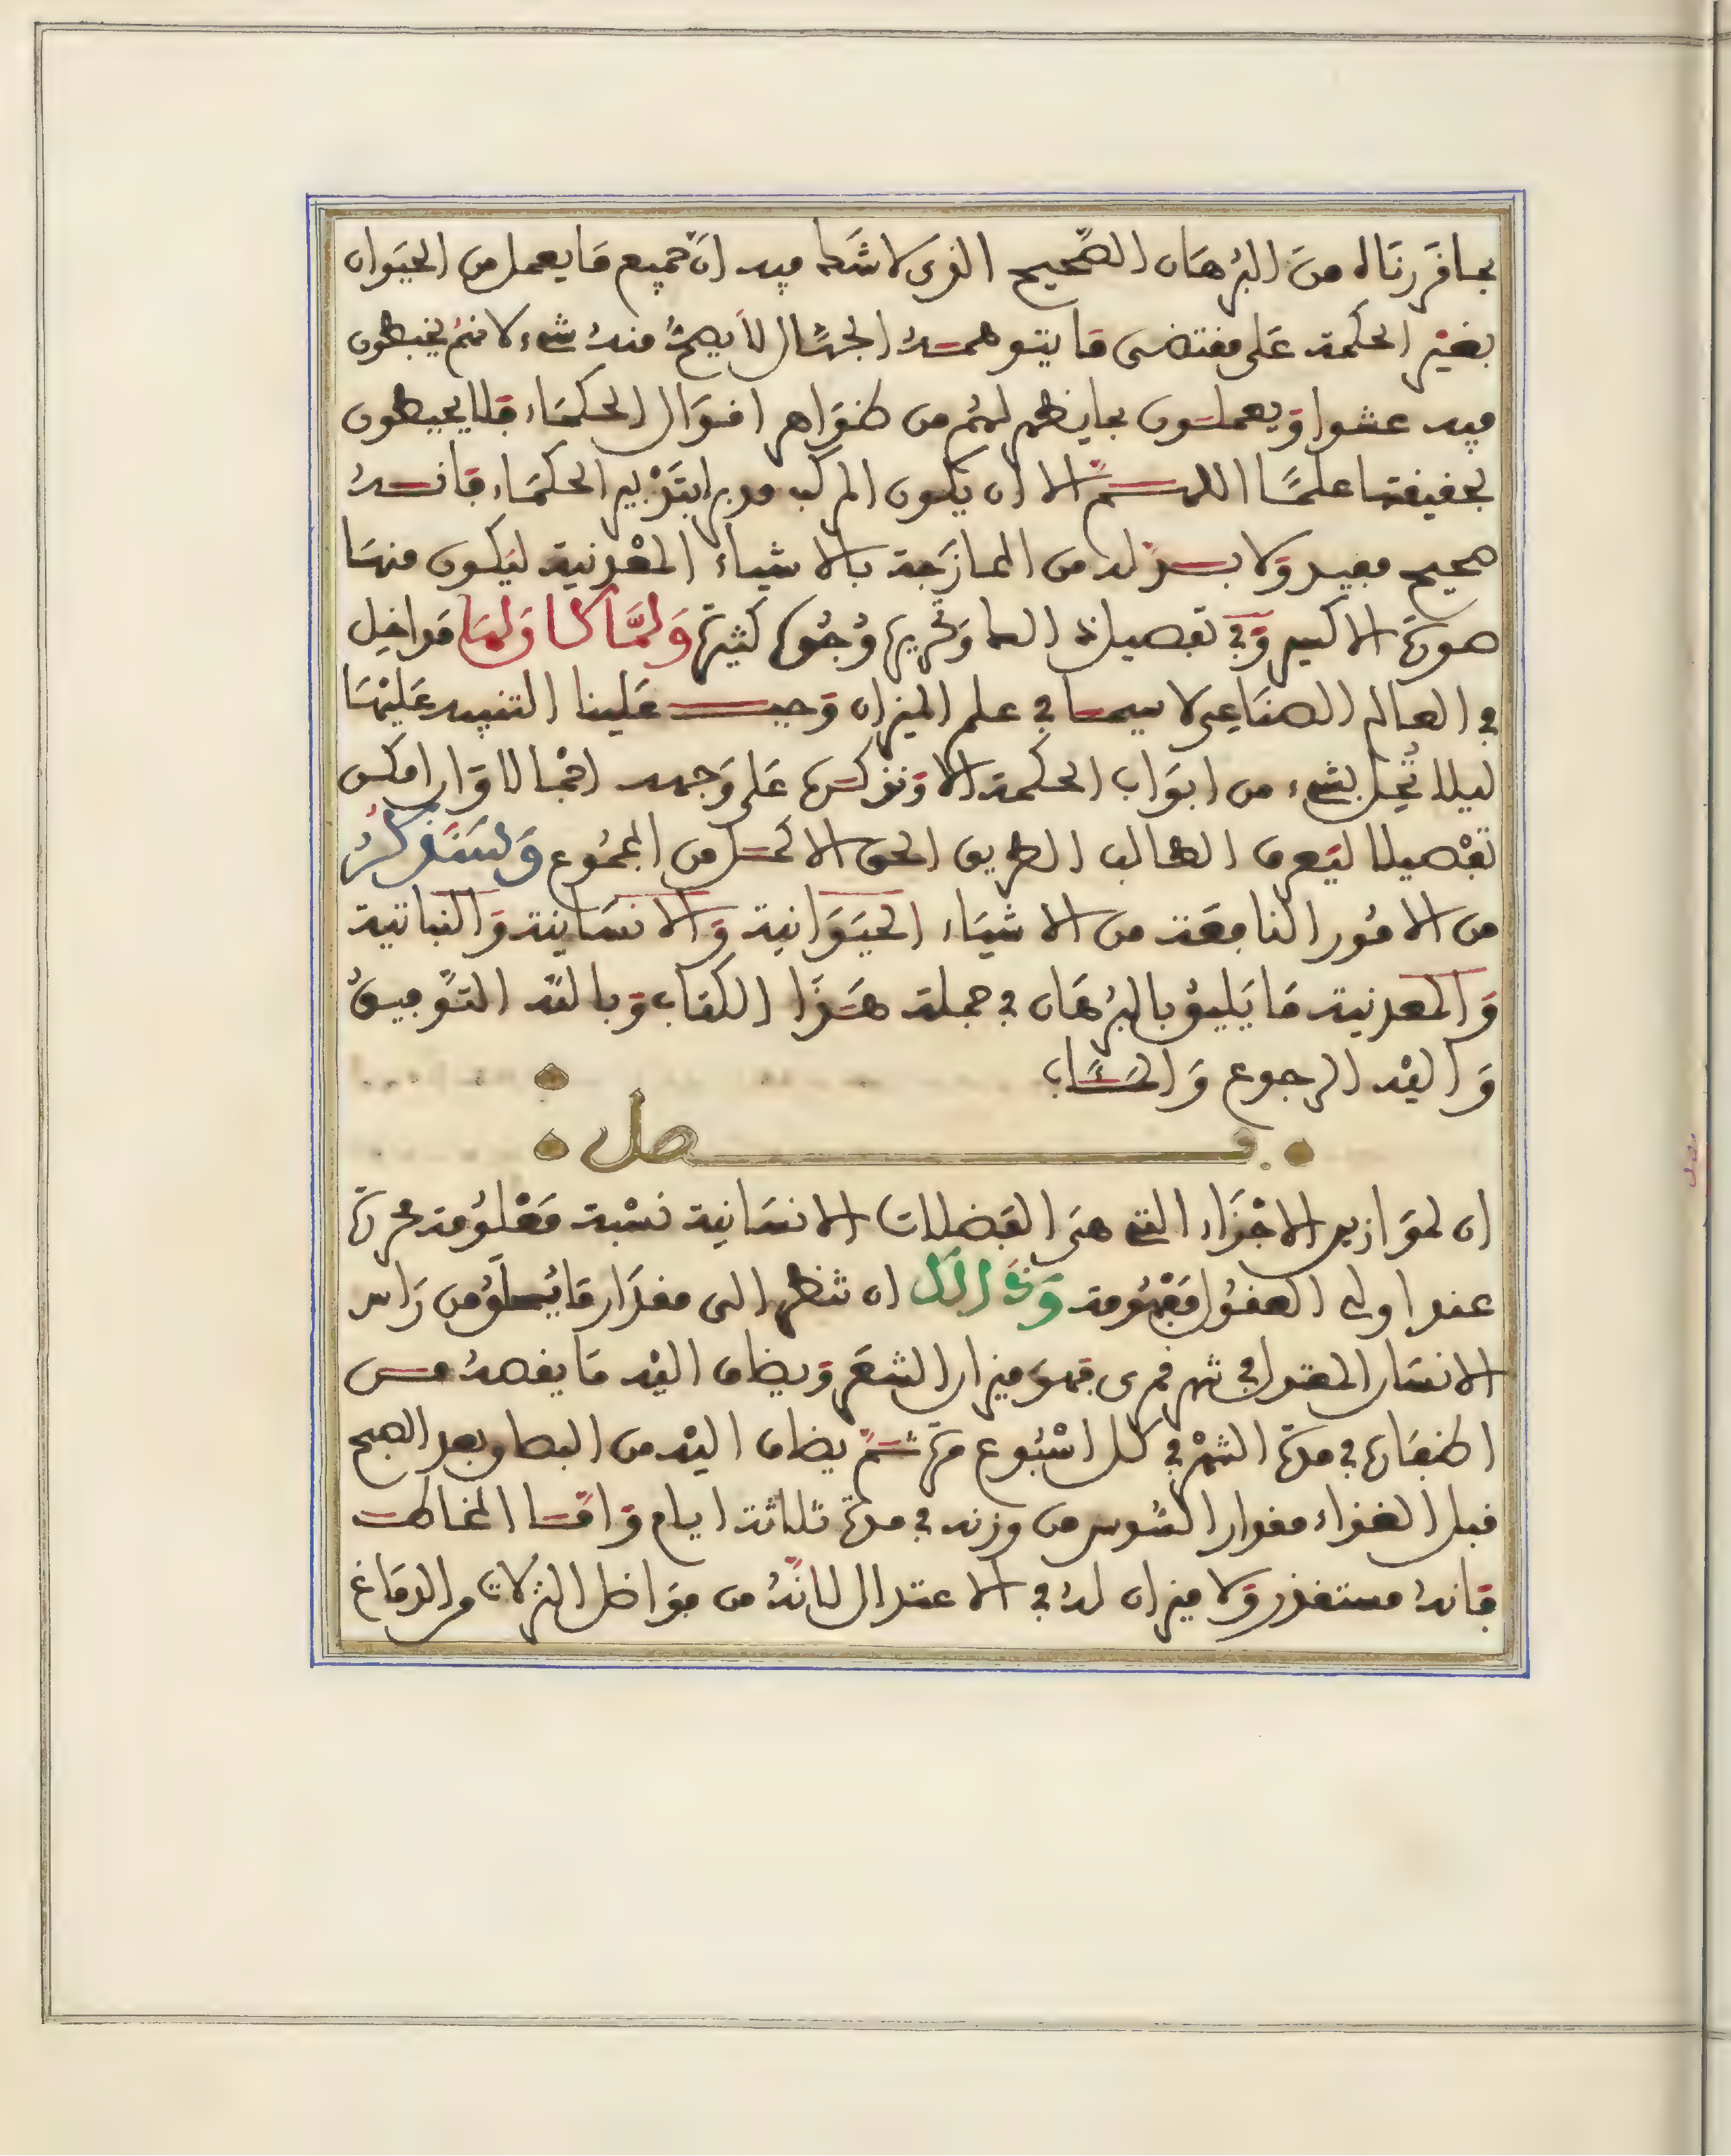 بما قررناه من البرهان الصحيح الذي لا شك فيه ان جميع ما يعمل من الحيوان
بغير الحكمة على مقتضى ما يتوهمه الجهال لا يصح منه شيء لانهم يخبطون
فيه عشوا ويعملون بما يظهر لهم من ظواهر اقوال الحكماء فلا يحيطون
بحقيقتها علما اللهم الا ان يكون المركب مدبرا بتدبير الحكماء فانه
صحيح مفيد ولا بد له من الممازجة بالاشياء المعدنية ليكون منها
صورة الاكسير وفي تفصيل وتحريره وجوه كثيرة ولما كا ولها مداخل
في العالم الصناعي لا سيما في علم الميزان وجب علينا التنبيه عليها
ليلا نخل بشيء من ابواب الحكمة الا ونذكره على وجهه اجمالا وان امكن
تفصيلا ليعرف الطالب الطريق الحق الاكمل من المجموع وسنذكر
من الامور النافعة من الاشياء الحيوانية والانسانية والنباتية
والمعدنية ما يليق بالبرهان في جملة هذا الكتاب وبالله التوفيق
واليه الرجوع والمئاب
فصل
ان لموازين الاجزاء التي هي الفضلات الانسانية نسبة معلومة محررة
عند اولي العقول مفهومة وذالك ان تنظر الى مقدار ما يحلق من راس
الانسان المعتدل في شهر قمري فهو ميزان الشعر ويضاف اليه ما يقصه من
اظفاره في مدة الشهر في كل اسبوع مرة ثم يضاف اليه من البصاق بعد الصبح
قبل الغذاء مقدار السدس من وزنه في مدة ثلاثة ايام واما المخاط
فانه مستقذر ولا ميزان له في الاعتدال لانه من فواضل النزلات من الدماغ